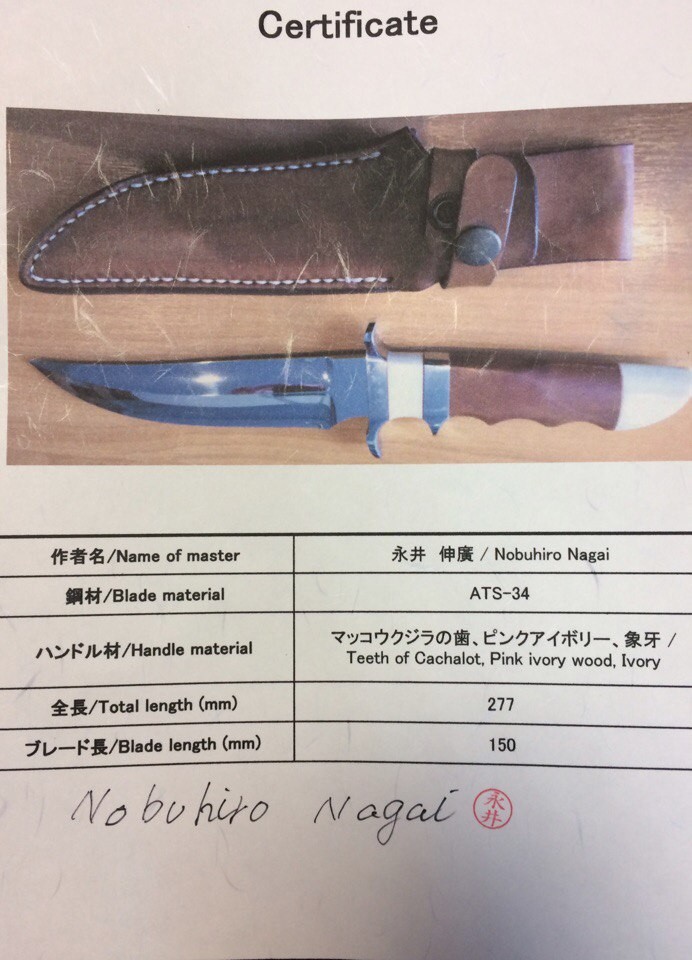 Certificate
作者名/Name of master
永井 伸廣 / Nobuhiro Nagai
鋼材/Blade material
ATS-34
ハンドル材/Handle material
マッコウクジラの歯、ピンクアイボリー、象牙 /
Teeth of Cachalot, Pink ivory wood, Ivory
全長/Total length (mm)
277
ブレード長/Blade length (mm)
150
Nobuhiro Nagai
永井